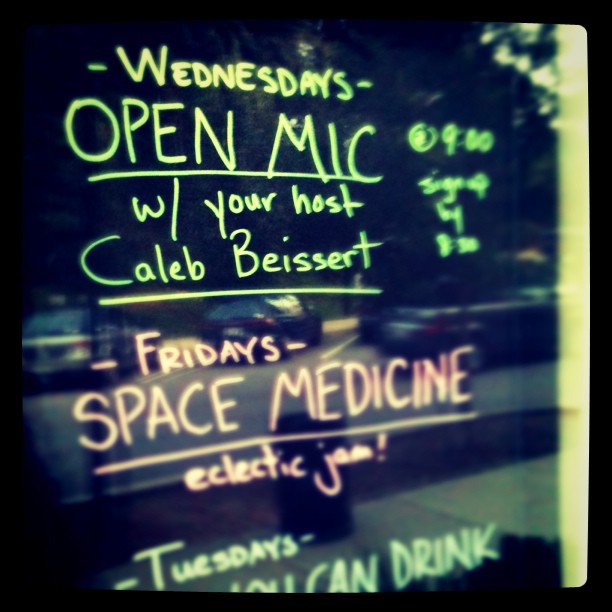 - WEDNESDAYS -
OPEN MIC
w/ your host
Caleb Beissert
@ 9:00
sign up
by
8:30
- FRIDAYS -
SPACE MEDICINE
eclectic jam!
- TUESDAYS -
YOU CAN DRINK